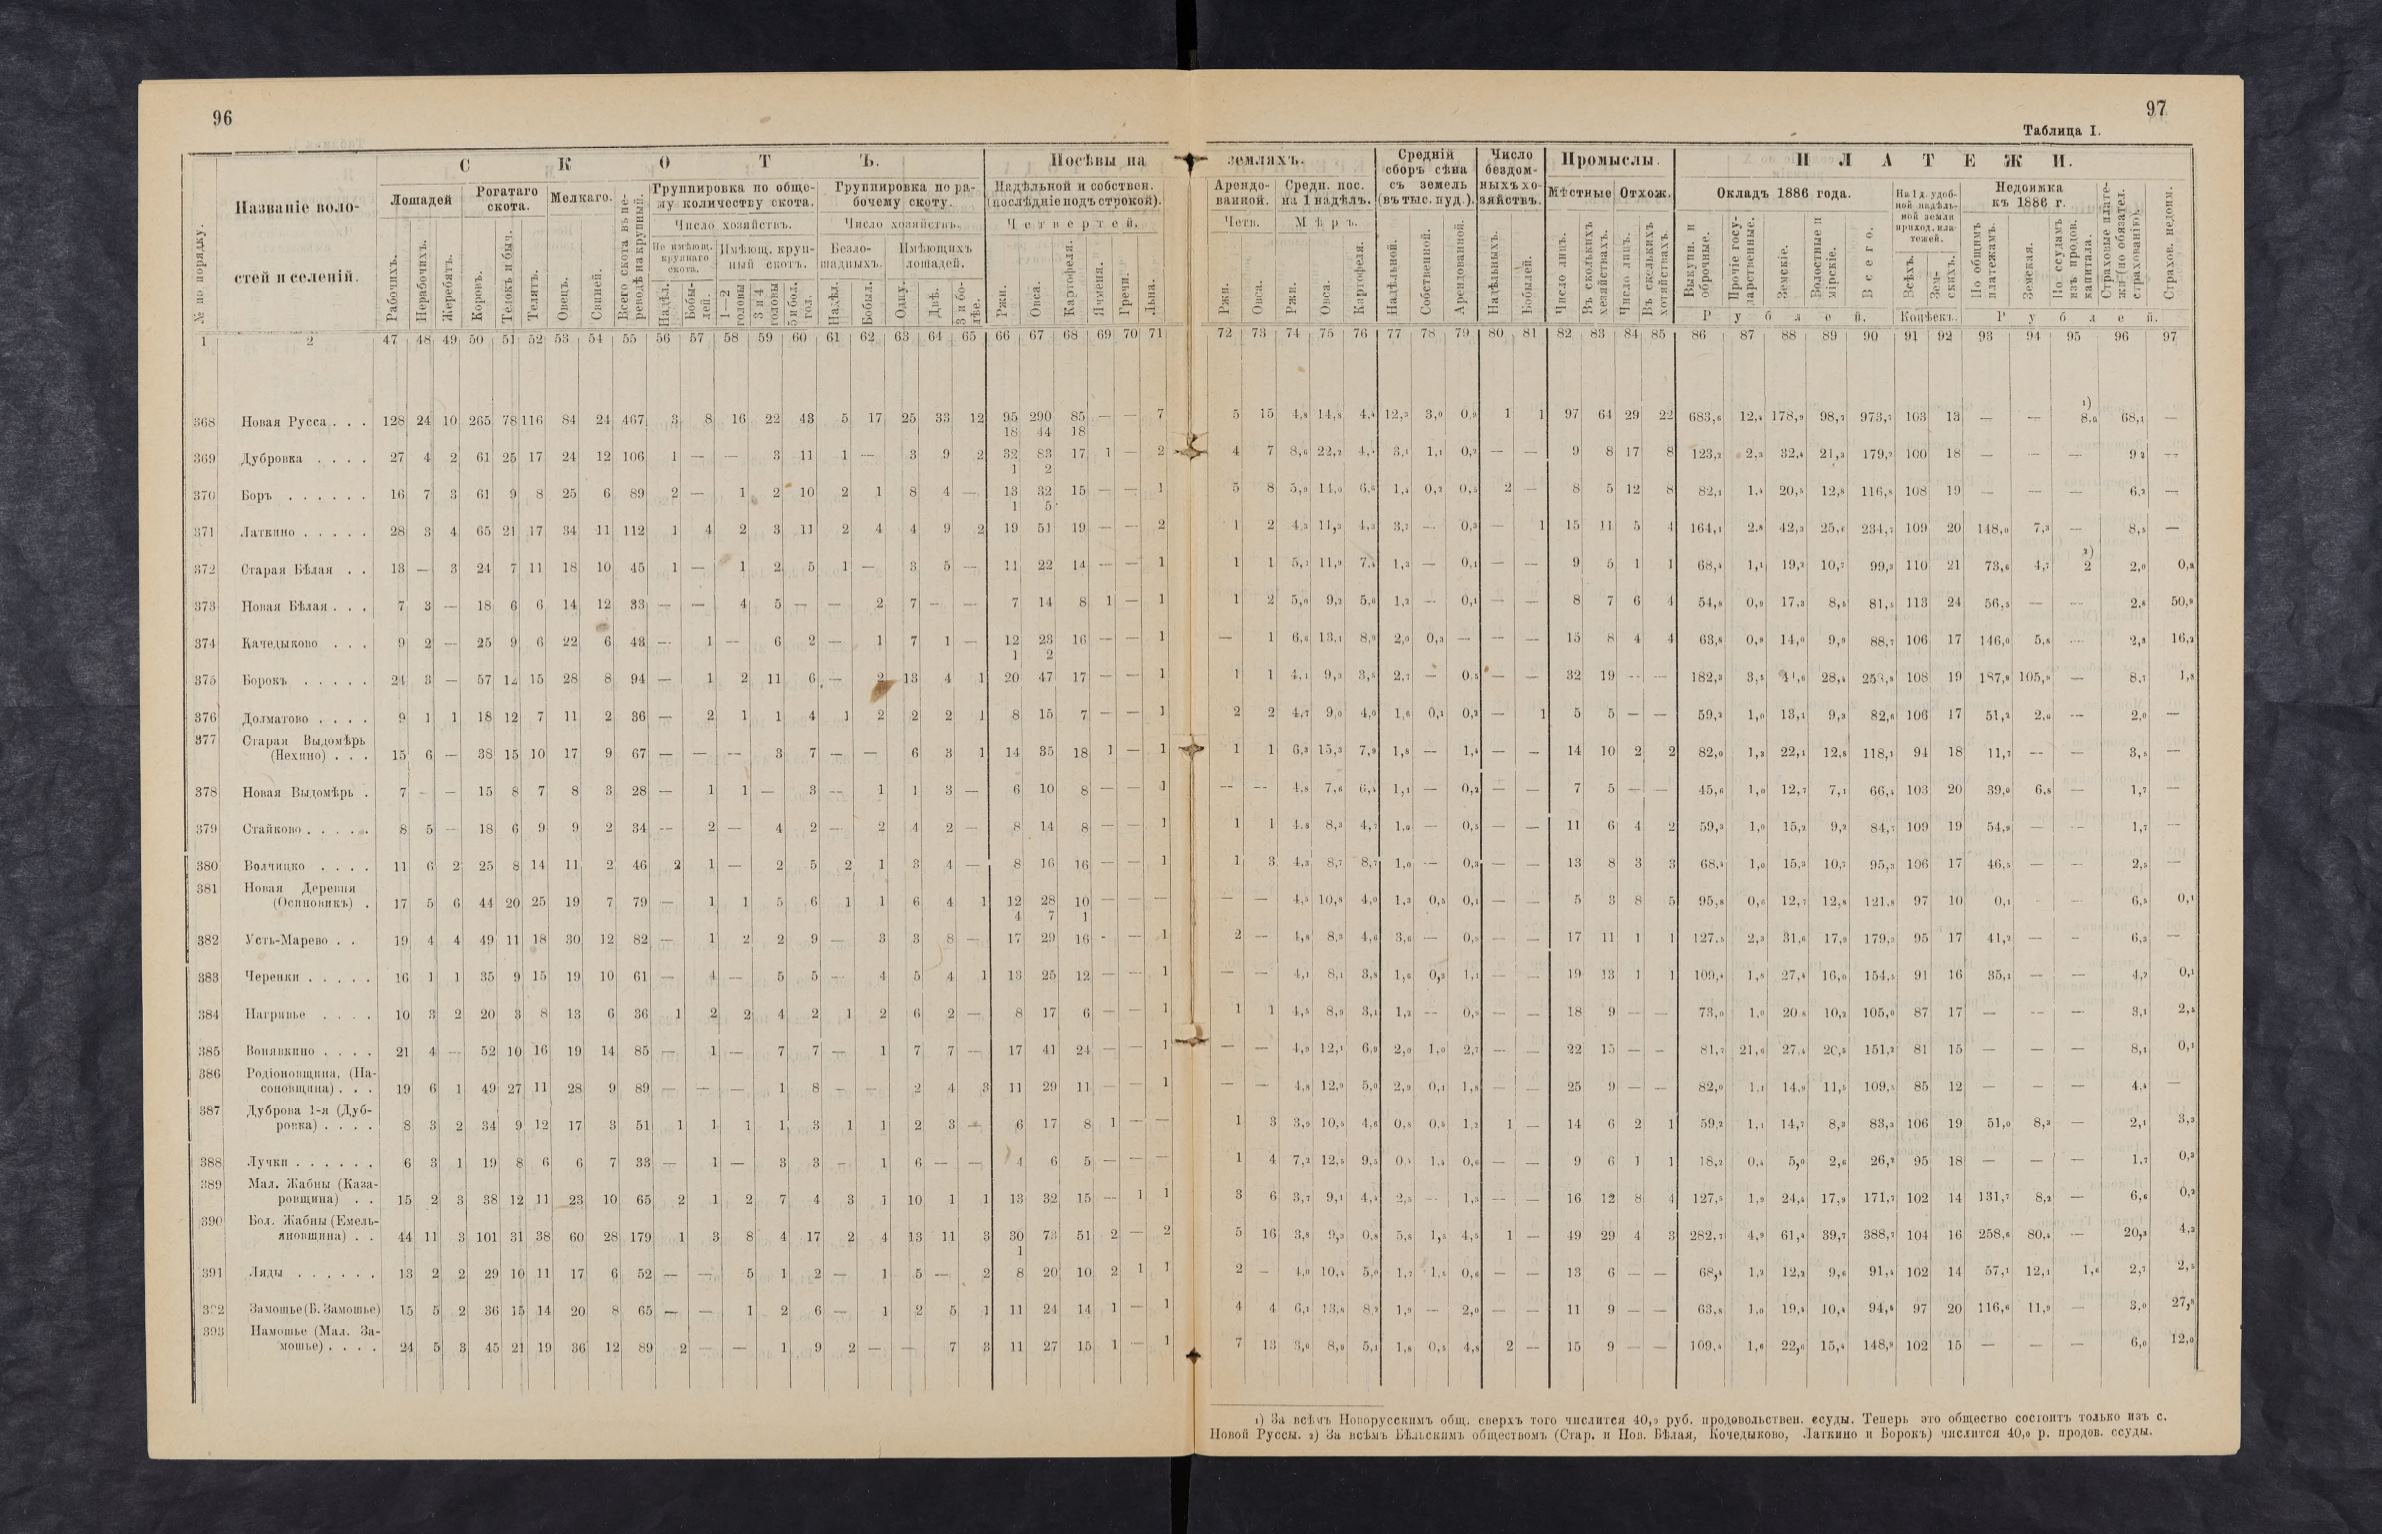 96
97
Таблица I.
С К О Т Ъ.
Посѣвы на
земляхъ.
Средній сборъ сѣна съ земель (въ тыс. пуд.).
Число бездомныхъ хозяйствъ.
Промыслы.
П Л А Т Е Ж И.
№ по порядку.
Названіе волостей и селеній.
Лошадей
Рогатаго скота.
Мелкаго.
Всего скота въ переводѣ на крупный.
Группировка по общему количеству скота.
Группировка по рабочему скоту.
Надѣльной и собствен. (послѣдніе подъ строкой).
Арендованной.
Средн. пос. на 1 надѣлъ.
Мѣстные
Отхож.
Окладъ 1886 года.
На 1 д. удобной надѣльной земли приход. платежей.
Недоимка къ 1886 г.
Страховые платежи (по обязател. страхованію).
Страхов. недоим.
Число хозяйствъ.
Число хозяйствъ.
Четвертей.
Четв.
Мѣръ.
Не имѣющ. крупнаго скота.
Имѣющ. крупный скотъ.
Безлошадныхъ.
Имѣющихъ лошадей.
Рабочихъ.
Нерабочихъ.
Жеребятъ.
Коровъ.
Телокъ и быч.
Телятъ.
Овецъ.
Свиней.
Надѣл.
Бобылей.
1—2 головы
3 и 4 головы
5 и бол. гол.
Надѣл.
Бобыл.
Одну.
Двѣ.
3 и болѣе.
Ржи.
Овса.
Картофеля.
Ячменя.
Гречи.
Льна.
Ржи.
Овса.
Ржи.
Овса.
Картофеля.
Надѣльной.
Собственной.
Арендованной.
Надѣльныхъ.
Бобылей.
Число лицъ.
Въ сколькихъ хозяйствахъ.
Число лицъ.
Въ сколькихъ хозяйствахъ.
Выкупн. и оброчные.
Прочіе государственные.
Земскіе.
Волостные и мірскіе.
Всего.
Всѣхъ.
Земскихъ.
По общимъ платежамъ.
Земская.
По ссудамъ изъ продов. капитала.
Рублей.
Копѣекъ.
Рублей.
1 2 47 48 49 50 51 52 53 54 55 56 57 58 59 60 61 62 63 64 65 66 67 68 69 70 71 72 73 74 75 76 77 78 79 80 81 82 83 84 85 86 87 88 89 90 91 92 93 94 95 96 97
368 Новая Русса . . . 128 24 10 265 78 116 84 24 467 3 8 16 22 43 5 17 25 33 12 95 290 85 — — 7 5 15 4,8 14,8 4,4 12,3 3,0 0,9 1 1 97 64 29 22 683,6 12,4 178,9 98,7 973,7 103 13 — — 1) 8,0 68,1 —
18 44 18
369 Дубровка . . . . 27 4 2 61 25 17 24 12 106 1 — — 3 11 1 — 3 9 2 32 83 17 1 — 2 4 7 8,6 22,2 3,1 1,1 0,2 — — 9 8 17 8 123,2 2,3 32,4 21,3 179,2 100 18 — — — 9 2 —
1 2
370 Боръ . . . . . . 16 7 3 61 9 8 25 6 89 2 — 1 2 10 2 1 8 4 — 13 32 15 — — 1 5 8 5,9 14,0 6,6 1,4 0,2 0,5 2 — 8 5 12 8 82,1 1,4 20,5 12,8 116,8 108 19 — — — 6,2 —
1 5
371 Латкино . . . . . 28 3 4 65 21 17 34 11 112 1 4 2 3 11 2 4 4 9 2 19 51 19 — — 2 1 2 4,3 11,3 4,3 3,7 — 0,3 — 1 15 11 5 4 164,1 2,8 42,3 25,6 234,7 109 20 148,0 7,3 — 8,5 —
372 Старая Бѣлая . . 13 — 3 24 7 11 18 10 45 1 — 1 2 5 1 — 3 5 — 11 22 14 — — 1 1 1 5,7 11,9 7,4 1,3 — 0,1 — — 9 5 1 1 68,4 1,1 19,2 10,7 99,3 110 21 73,6 4,7 2) 2 2,0 0,8
373 Новая Бѣлая . . . 7 3 — 18 6 6 14 12 33 — — 4 5 — — 2 7 — — 7 14 8 1 — 1 1 2 5,0 9,2 5,0 1,2 — 0,1 — — 8 7 6 4 54,8 0,9 17,3 8,5 81,5 113 24 56,5 — — 2,8 50,9
374 Качедыково . . . 9 2 — 25 9 6 22 6 43 — 1 — 6 2 — 1 7 1 — 12 23 16 — — 1 — 1 6,6 13,1 8,9 2,0 0,3 — — — 15 8 4 4 63,8 0,9 14,0 9,9 88,7 106 17 146,0 5,8 — 2,3 16,2
1 2
375 Борокъ . . . . . 24 3 — 57 12 15 28 8 94 — 1 2 11 6 — 2 13 4 1 20 47 17 — — 1 1 1 4,1 9,3 3,5 2,7 — 0,5 — — 32 19 — — 182,3 3,5 28,4 108 19 187,9 105,9 — 8,7 1,8
376 Долматово . . . . 9 1 1 18 12 7 11 2 36 — 2 1 1 4 1 2 2 2 1 8 15 7 — — 1 2 2 4,7 9,0 4,0 1,6 0,1 0,2 — 1 5 5 — — 59,2 1,0 13,1 9,3 82,6 106 17 51,2 2,0 — 2,0 —
377 Старая Выдомѣрь
(Нехино) . . . 15 6 — 38 15 10 17 9 67 — — — 3 7 — — 6 3 1 14 35 18 1 — 1 1 1 6,3 15,3 7,9 1,8 — 1,4 — — 14 10 2 2 82,0 1,3 22,1 12,8 118,1 94 18 11,7 — — 3,5 —
378 Новая Выдомѣрь . 7 — — 15 8 7 8 3 28 — 1 1 — 3 — 1 1 3 — 6 10 8 — — 1 — — 4,8 7,6 6,4 1,1 — 0,2 — — 7 5 — — 45,6 1,0 12,7 7,1 66,4 103 20 39,0 6,8 — 1,7 —
379 Стайково . . . . . 8 5 — 18 6 9 9 2 34 — 2 — 4 2 — 2 4 2 — 8 14 8 — — 1 1 1 4,8 8,3 4,7 1,0 — 0,5 — — 11 6 4 2 59,3 1,0 15,2 9,2 84,7 109 19 54,9 — — 1,7 —
380 Волчицко . . . . 11 6 2 25 8 14 11 2 46 2 1 — 2 5 2 1 3 4 — 8 16 16 — — 1 1 3 4,3 8,7 8,7 1,0 — 0,3 — — 13 8 3 3 68,4 1,0 15,3 10,7 95,3 106 17 46,5 — — 2,5 —
381 Новая Деревня
(Осиновикъ) . 17 5 6 44 20 25 19 7 79 — 1 1 5 6 1 1 6 4 1 12 28 10 — — — — — 4,5 10,8 4,0 1,3 0,5 0,1 — — 5 3 8 5 95,8 0,6 12,7 12,8 121,8 97 10 0,1 — — 6,5 0,1
4 7 1
382 Усть-Марево . . 19 4 4 49 11 18 30 12 82 — 1 2 2 9 — 3 3 8 — 17 29 16 - — 1 2 — 4,8 8,3 4,6 3,6 — 0,9 — — 17 11 1 1 127,5 2,3 31,6 17,9 179,3 95 17 41,2 — — 6,3 —
383 Черенки . . . . . 16 1 1 35 9 15 19 10 61 — 4 — 5 5 — 4 5 4 1 13 25 12 — — 1 — — 4,1 8,1 3,8 1,6 0,3 1,1 — — 19 13 1 1 109,4 1,8 27,4 16,0 154,5 91 16 35,1 — — 4,2 0,1
384 Нагривье . . . . 10 3 2 20 3 8 13 6 36 1 2 2 4 2 1 2 6 2 — 8 17 6 — — 1 1 1 4,5 8,9 3,1 1,2 — 0,9 — — 18 9 — — 73,0 1,0 20 8 10,2 105,0 87 17 — — — 3,1 2,5
385 Вонявкино . . . . 21 4 — 52 10 16 19 14 85 — 1 — 7 7 — 1 7 7 — 17 41 24 — — 1 — — 4,9 12,1 6,9 2,0 1,0 2,7 — — 22 15 — — 81,7 21,6 27,4 20,5 151,2 81 15 — — — 8,1 0,1
386 Родіоновщина, (Пасоновщина) . . . 19 6 1 49 27 11 28 9 89 — — — 1 8 — — 2 4 3 11 29 11 — — 1 — — 4,8 12,9 5,0 2,9 0,1 1,8 — — 25 9 — — 82,0 1,1 14,9 11,5 109,5 85 12 — — — 4,4 —
387 Дуброва 1-я (Дубровка) . . . . 8 3 2 34 9 12 17 3 51 1 1 1 1 3 1 1 2 3 — 6 17 8 1 — — 1 3 3,9 10,5 4,6 0,8 0,5 1,2 1 — 14 6 2 1 59,2 1,1 14,7 8,3 83,3 106 19 51,0 8,3 — 2,1 3,3
388 Лучки . . . . . . 6 3 1 19 8 6 6 7 33 — 1 — 3 3 — 1 6 — — 4 6 5 — — — 1 4 7,2 12,5 9,5 1,4 0,6 — — 9 6 1 1 18,2 0,4 5,0 2,6 26,2 95 18 — — — 1,7 0,3
389 Мал. Жабны (Казаровщина) . . 15 2 3 38 12 11 23 10 65 2 1 2 7 4 3 1 10 1 1 13 32 15 — 1 1 3 6 3,7 9,1 4,4 2,5 — 1,3 — — 16 12 8 4 127,5 1,9 24,4 17,9 171,7 102 14 131,7 8,2 — 6,6 0,2
390 Бол. Жабны (Емельяновщина) . . 44 11 3 101 31 38 60 28 179 1 3 8 4 17 2 4 13 11 3 30 73 51 2 — 2 5 16 3,8 9,3 0,8 5,8 1,5 4,5 1 — 49 29 4 3 282,7 4,9 61,4 39,7 388,7 104 16 258,6 80,4 — 20,3 4,3
1
391 Ляды . . . . . . 13 2 2 29 10 11 17 6 52 — — 5 1 2 — 1 5 — 2 8 20 10 2 1 1 2 — 4,0 10,4 5,0 1,7 1,5 0,6 — — 13 6 — — 68,4 1,2 12,2 9,6 91,4 102 14 57,1 12,1 1,6 2,7 2,5
392 Замошье (Б. Замошье) 15 5 2 36 15 14 20 8 65 — — 1 2 6 — 1 2 5 1 11 24 14 1 — 1 4 4 6,1 13,8 8,2 1,9 — 2,0 — — 11 9 — — 63,8 1,0 19,4 10,4 94,6 97 20 116,6 11,9 — 3,0 27,8
393 Намошье (Мал. Замошье) . . . . 24 5 3 45 21 19 36 12 89 2 — — 1 9 2 — — 7 3 11 27 15 1 — 1 7 13 3,0 8,0 5,1 1,8 0,5 4,8 2 — 15 9 — — 109,4 1,6 22,6 15,4 148,9 102 15 — — — 6,0 12,0
1) За всѣмъ Новорусскимъ общ. сверхъ того числится 40,9 руб. продовольствен. ссуды. Теперь это общество состоитъ только изъ с.
Новой Руссы. 2) За всѣмъ Бѣльскимъ обществомъ (Стар. и Нов. Бѣлая, Кочедыково, Латкино и Борокъ) числится 40,0 р. продов. ссуды.